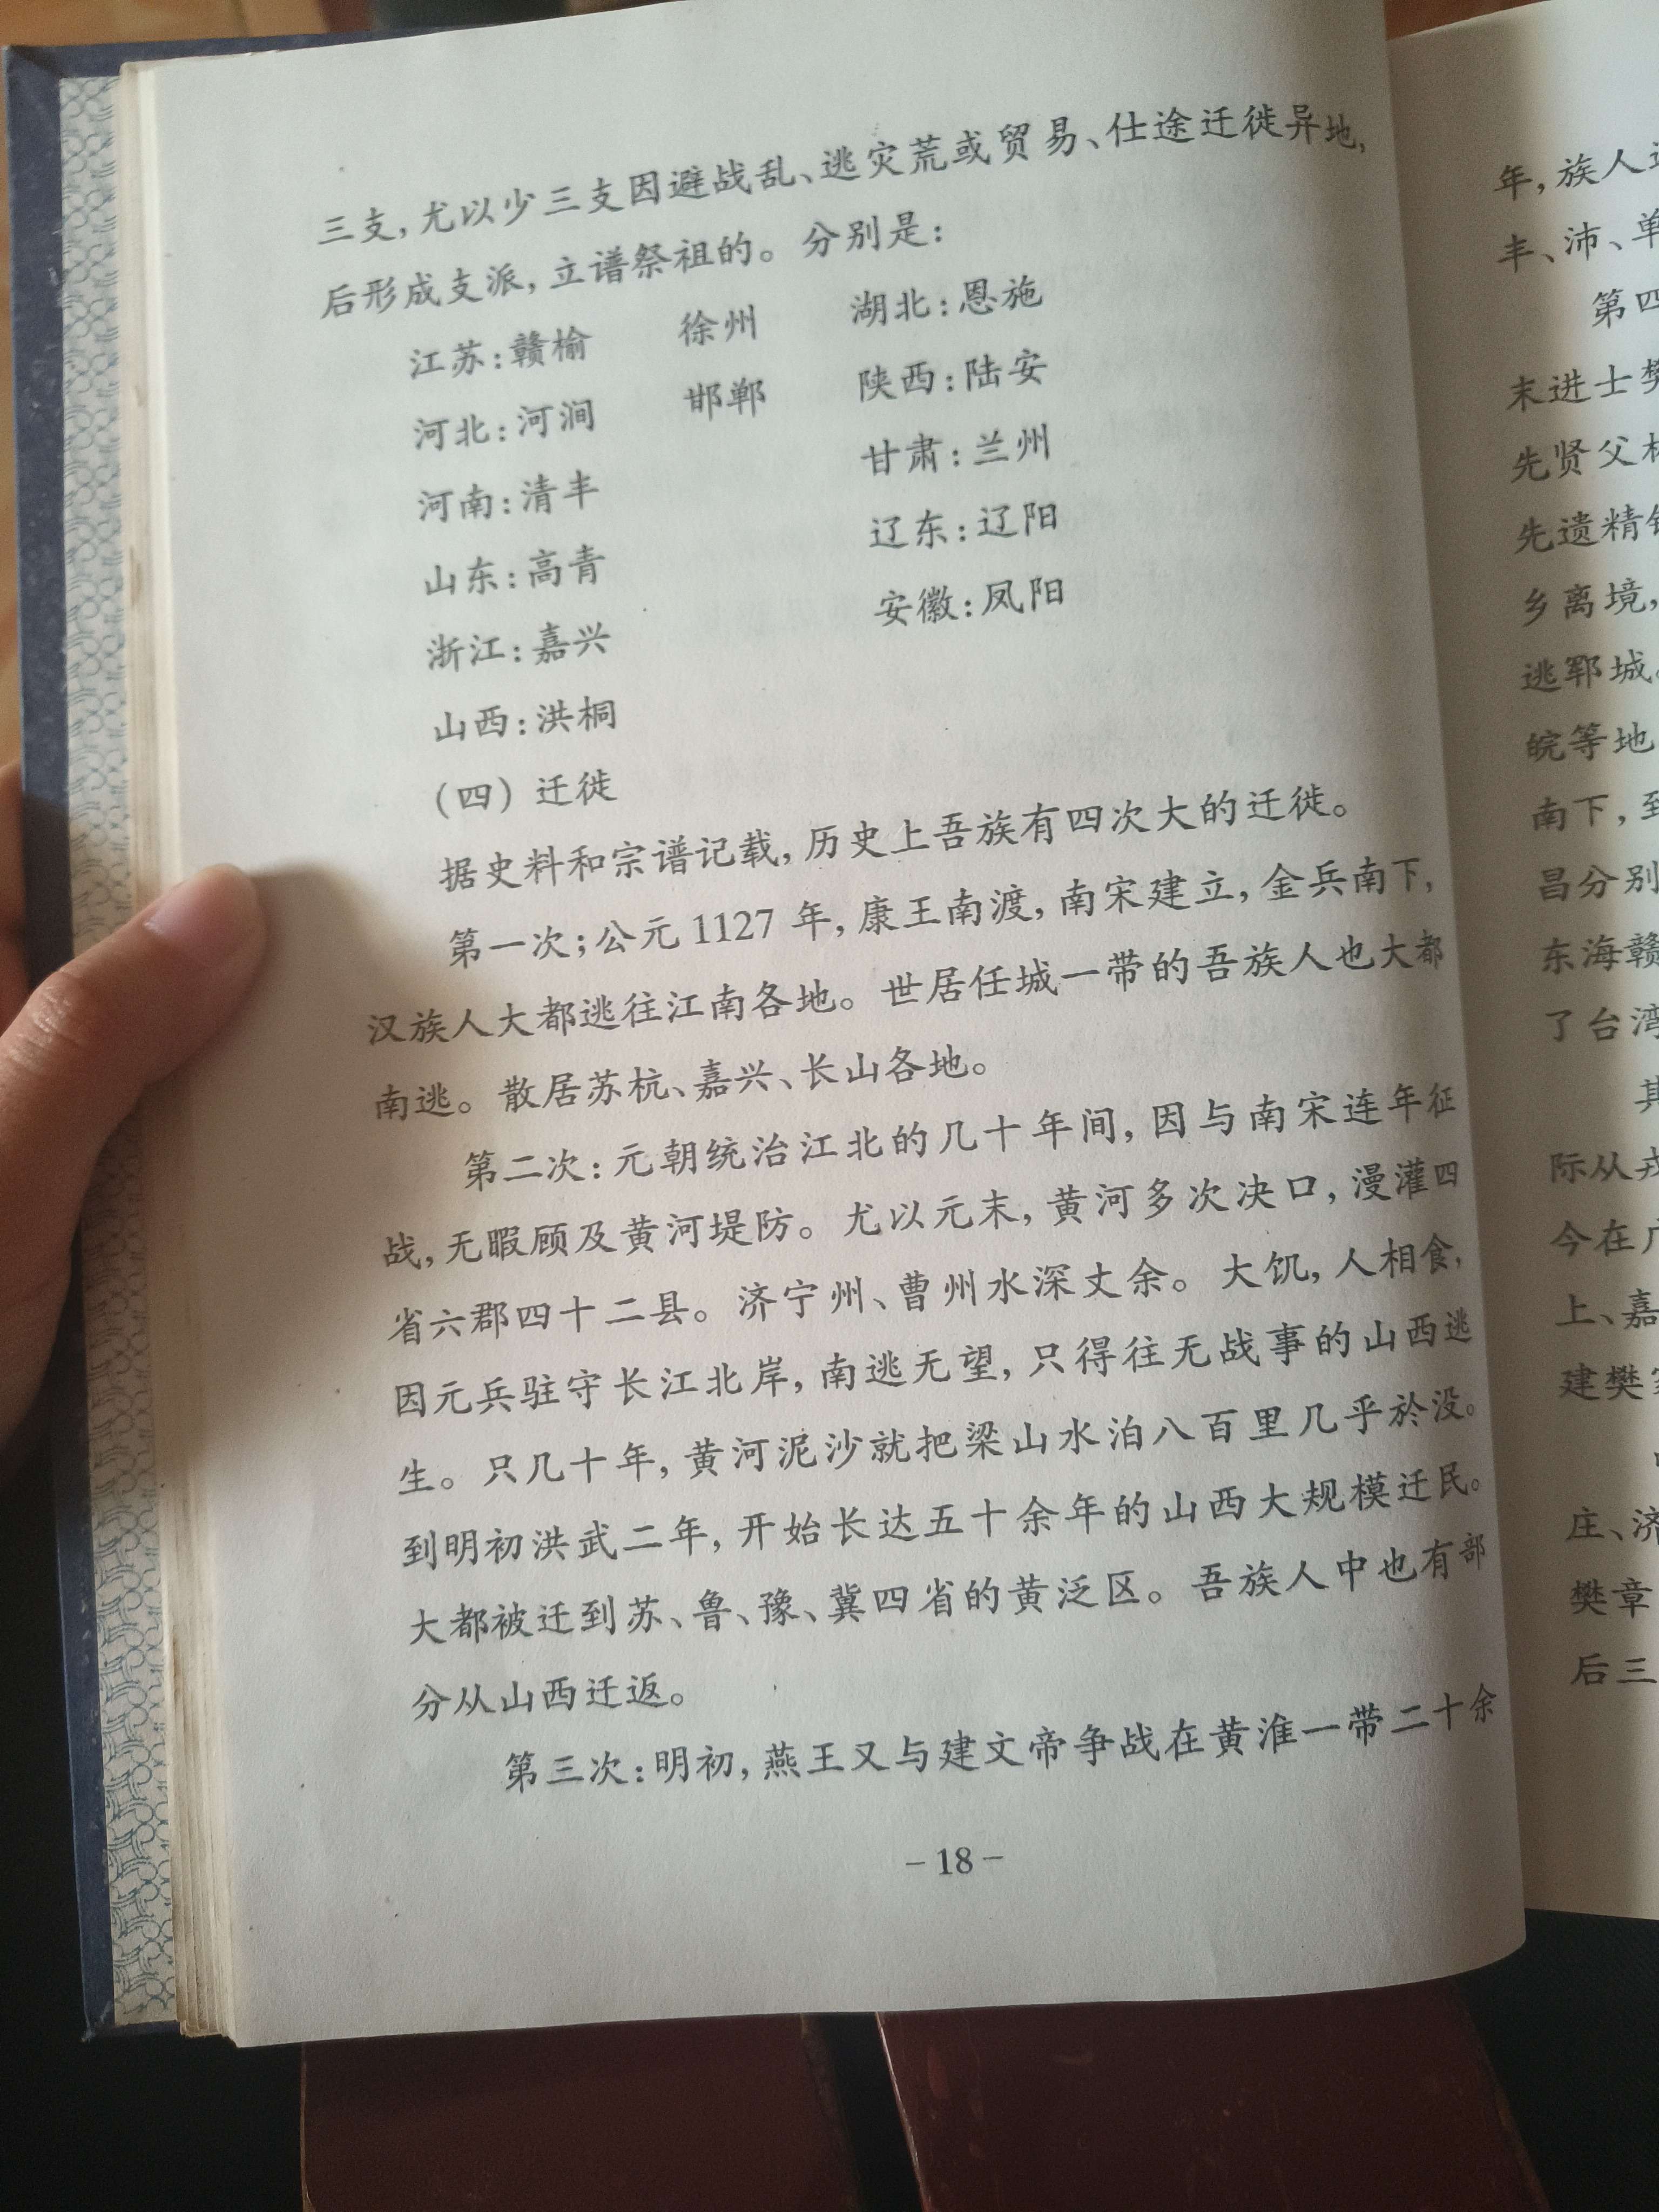 三支，尤以少三支因避战乱、逃灾荒或贸易、仕途迁徙异地，
后形成支派，立谱祭祖的。分别是：
江苏：赣榆 徐州 湖北：恩施
河北：河涧 邯郸 陕西：陆安
河南：清丰 甘肃：兰州
山东：高青 辽东：辽阳
浙江：嘉兴 安徽：凤阳
山西：洪桐
（四）迁徙
据史料和宗谱记载，历史上吾族有四次大的迁徙。
第一次；公元1127年，康王南渡，南宋建立，金兵南下，
汉族人大都逃往江南各地。世居任城一带的吾族人也大都
南逃。散居苏杭、嘉兴、长山各地。
第二次：元朝统治江北的几十年间，因与南宋连年征
战，无暇顾及黄河堤防。尤以元末，黄河多次决口，漫灌四
省六郡四十二县。济宁州、曹州水深丈余。大饥，人相食，
因元兵驻守长江北岸，南逃无望，只得往无战事的山西逃
生。只几十年，黄河泥沙就把梁山水泊八百里几乎於没。
到明初洪武二年，开始长达五十余年的山西大规模迁民。
大都被迁到苏、鲁、豫、冀四省的黄泛区。吾族人中也有部
分从山西迁返。
第三次：明初，燕王又与建文帝争战在黄淮一带二十余
-18-
年，族人
丰、沛、单
第四
末进士樊
先贤父
先遗精
乡离境，
逃郓城。
皖等地
南下，到
昌分别
东海赣
了台湾
其
际从戎
今在广
上、嘉
建樊
庄、济
樊章
后三